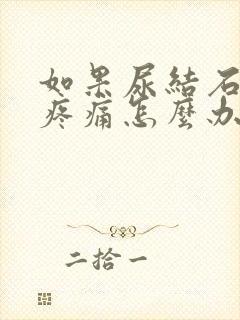 如果尿結石
疼痛怎麼办
二拾一